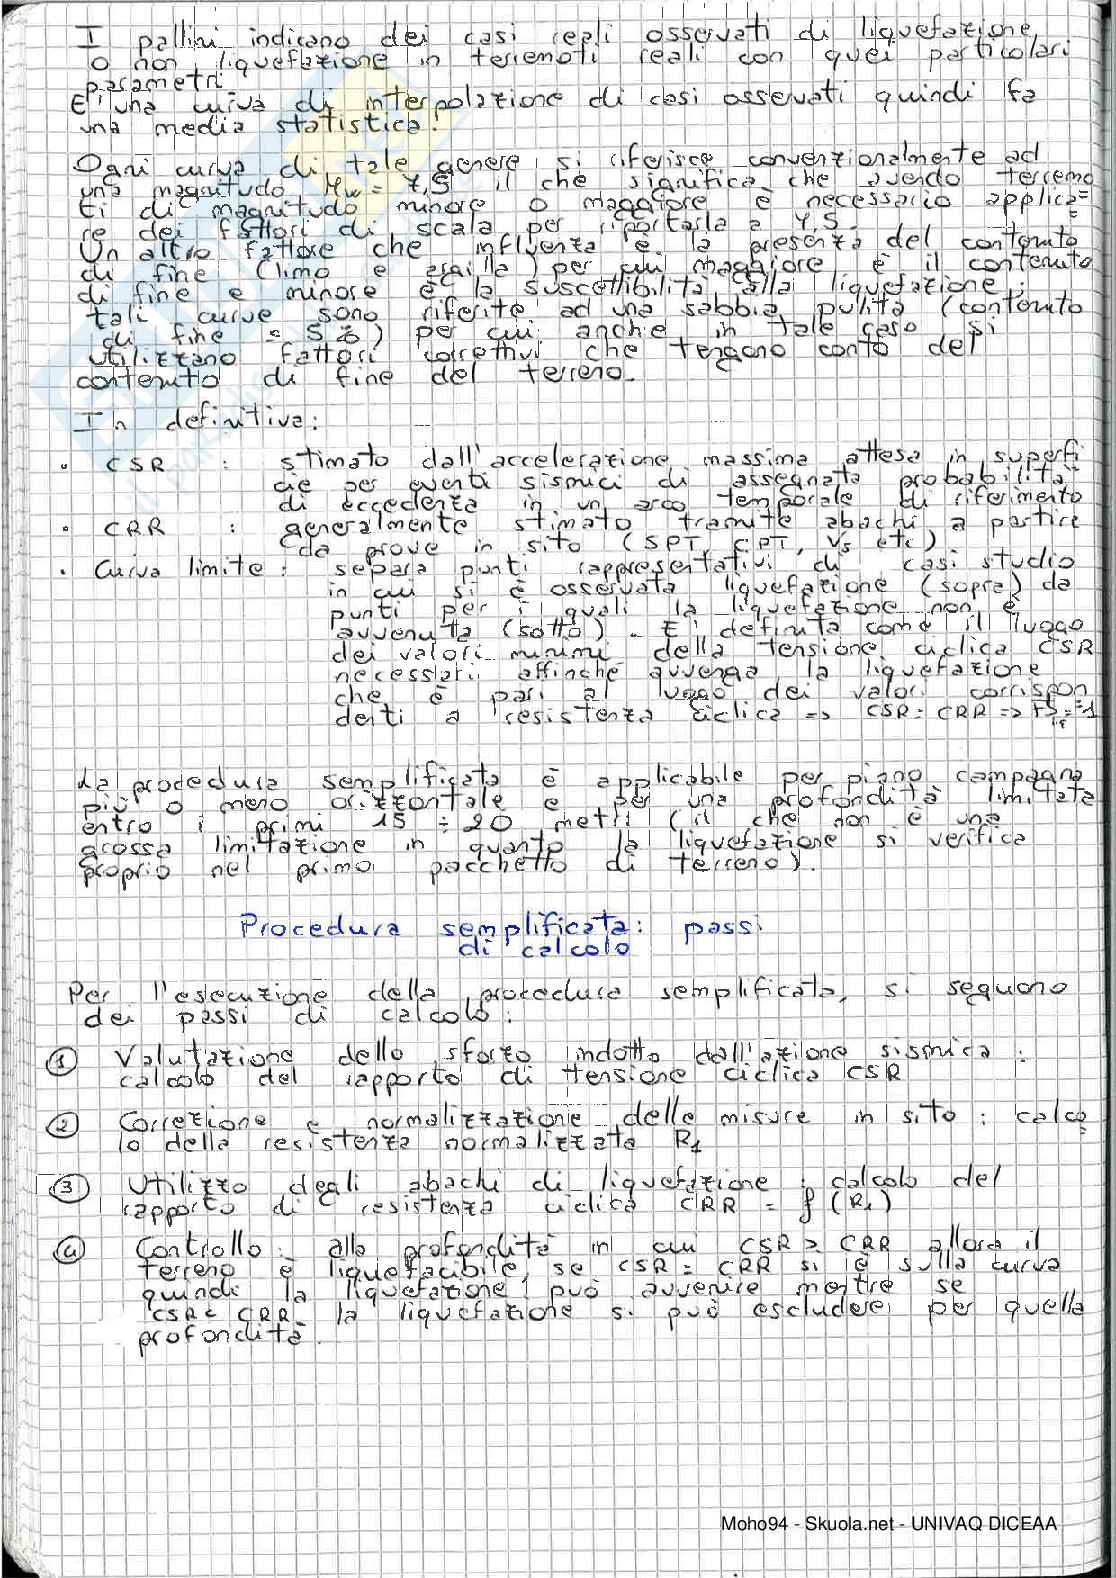 I pallini indicano dei casi reali osservati di liquefazione,
o non liquefazione in terremoti reali con quei particolari
parametri.
E' una curva di interpolazione di casi osservati quindi fa
una media statistica!
Ogni curva di tale genere si riferisce convenzionalmente ad
una magnitudo Mw = 7,5 il che significa che avendo terremo
ti di magnitudo minore o maggiore è necessario applica=
re dei fattori di scala per riportarla a 7,5.
Un altro fattore che influenza è la presenza del contenuto
di fine (limo e argilla) per cui maggiore è il contenuto
di fine e minore è la suscettibilità alla liquefazione;
tali curve sono riferite ad una sabbia pulita (contenuto
di fine ≤ 5%) per cui anche in tale caso si
utilizzano fattori correttivi che tengano conto del
contenuto di fine del terreno.
In definitiva:
• CSR : stimato dall'accelerazione massima attesa in superfi
cie per eventi sismici di assegnata probabilità
di eccedenza in un arco temporale di riferimento
• CRR : generalmente stimato tramite abachi, a partire
da prove in sito (SPT, CPT, Vs etc)
• Curva limite: separa punti rappresentativi di casi studio
in cui si è osservata liquefazione (sopra) da
punti per i quali la liquefazione non è
avvenuta (sotto). E' definita come il luogo
dei valori minimi della tensione ciclica CSR
necessari affinché avvenga la liquefazione
che è pari al luogo dei valori corrispon
denti a resistenza ciclica => CSR = CRR => FS liq = 1
La procedura semplificata è applicabile per piano campagna
più o meno orizzontale e per una profondità limitata
entro i primi 15 ÷ 20 metri (il che non è una
grossa limitazione in quanto la liquefazione si verifica
proprio nel primo pacchetto di terreno).
Procedura semplificata: passi
di calcolo
Per l'esecuzione della procedura semplificata, si seguono
dei passi di calcolo:
① Valutazione dello sforzo indotto dall'azione sismica:
calcolo del rapporto di tensione ciclica CSR
② Correzione e normalizzazione delle misure in sito: calco
lo della resistenza normalizzata R1
③ Utilizzo degli abachi di liquefazione: calcolo del
rapporto di resistenza ciclica CRR = f(R1)
④ Controllo: alla profondità in cui CSR > CRR allora il
terreno è liquefacibile, se CSR = CRR si è sulla curva
quindi la liquefazione può avvenire mentre se
CSR < CRR la liquefazione si può escludere per quella
profondità.
Moho94 - Skuola.net - UNIVAQ DICEAA